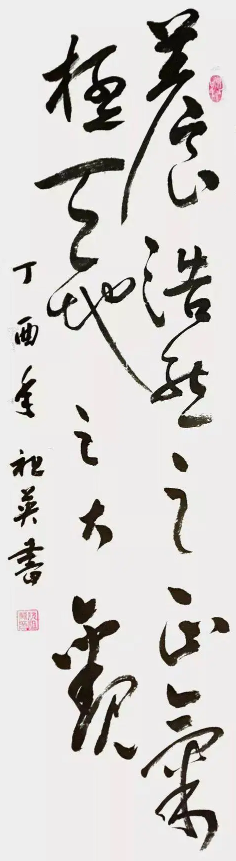 養浩然之正氣
極天地之大觀
丁酉年祖英書